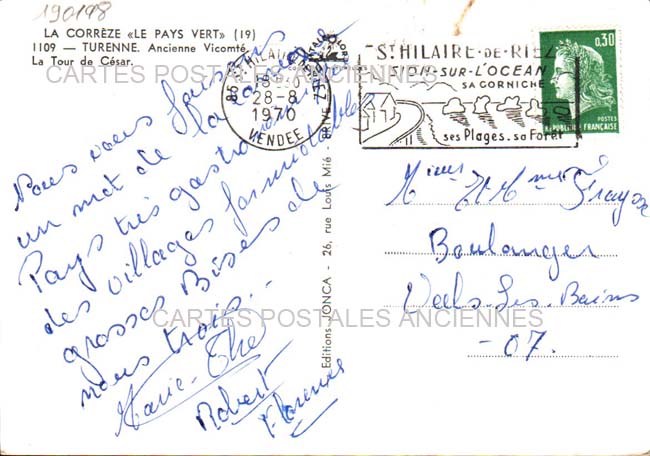 190198
LA CORRÈZE «LE PAYS VERT» (19)
1109 — TURENNE. Ancienne Vicomté.
La Tour de César.
CARTES POSTALES ANCIENNES
85 ST HILAIRE
28-8
1970
VENDEE
ST HILAIRE-DE-RIEZ
SION-SUR-L'OCEAN
SA CORNICHE
ses Plages. sa Forêt
0,30
POSTES
REPUBLIQUE FRANÇAISE
Nous vous faisons
un mot de la Corrèze
Pays très gastronomique
des villages formidables
grosses Bises de
nous trois...
Marie-
Robert
Florence
Editions JONCA - 26, rue Louis Mié - BRIVE
Boulanger
Vals-Les-Bains
-07.
CARTES POSTALES ANCIENNES